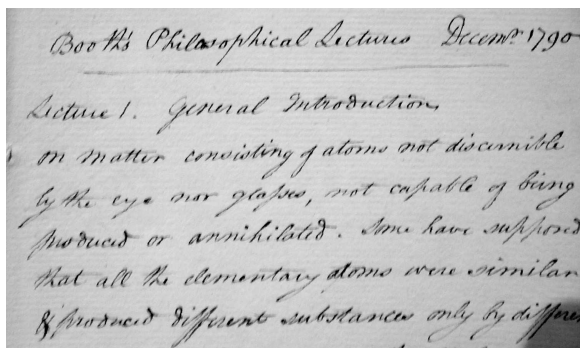 Booth's Philosophical Lectures Decemr. 1790
Lecture 1. General Introduction
on matter consisting of atoms not discernible
by the eye nor glasses, not capable of being
produced or annihilated. Some have supposed
that all the elementary atoms were similar
& produced different substances only by differen